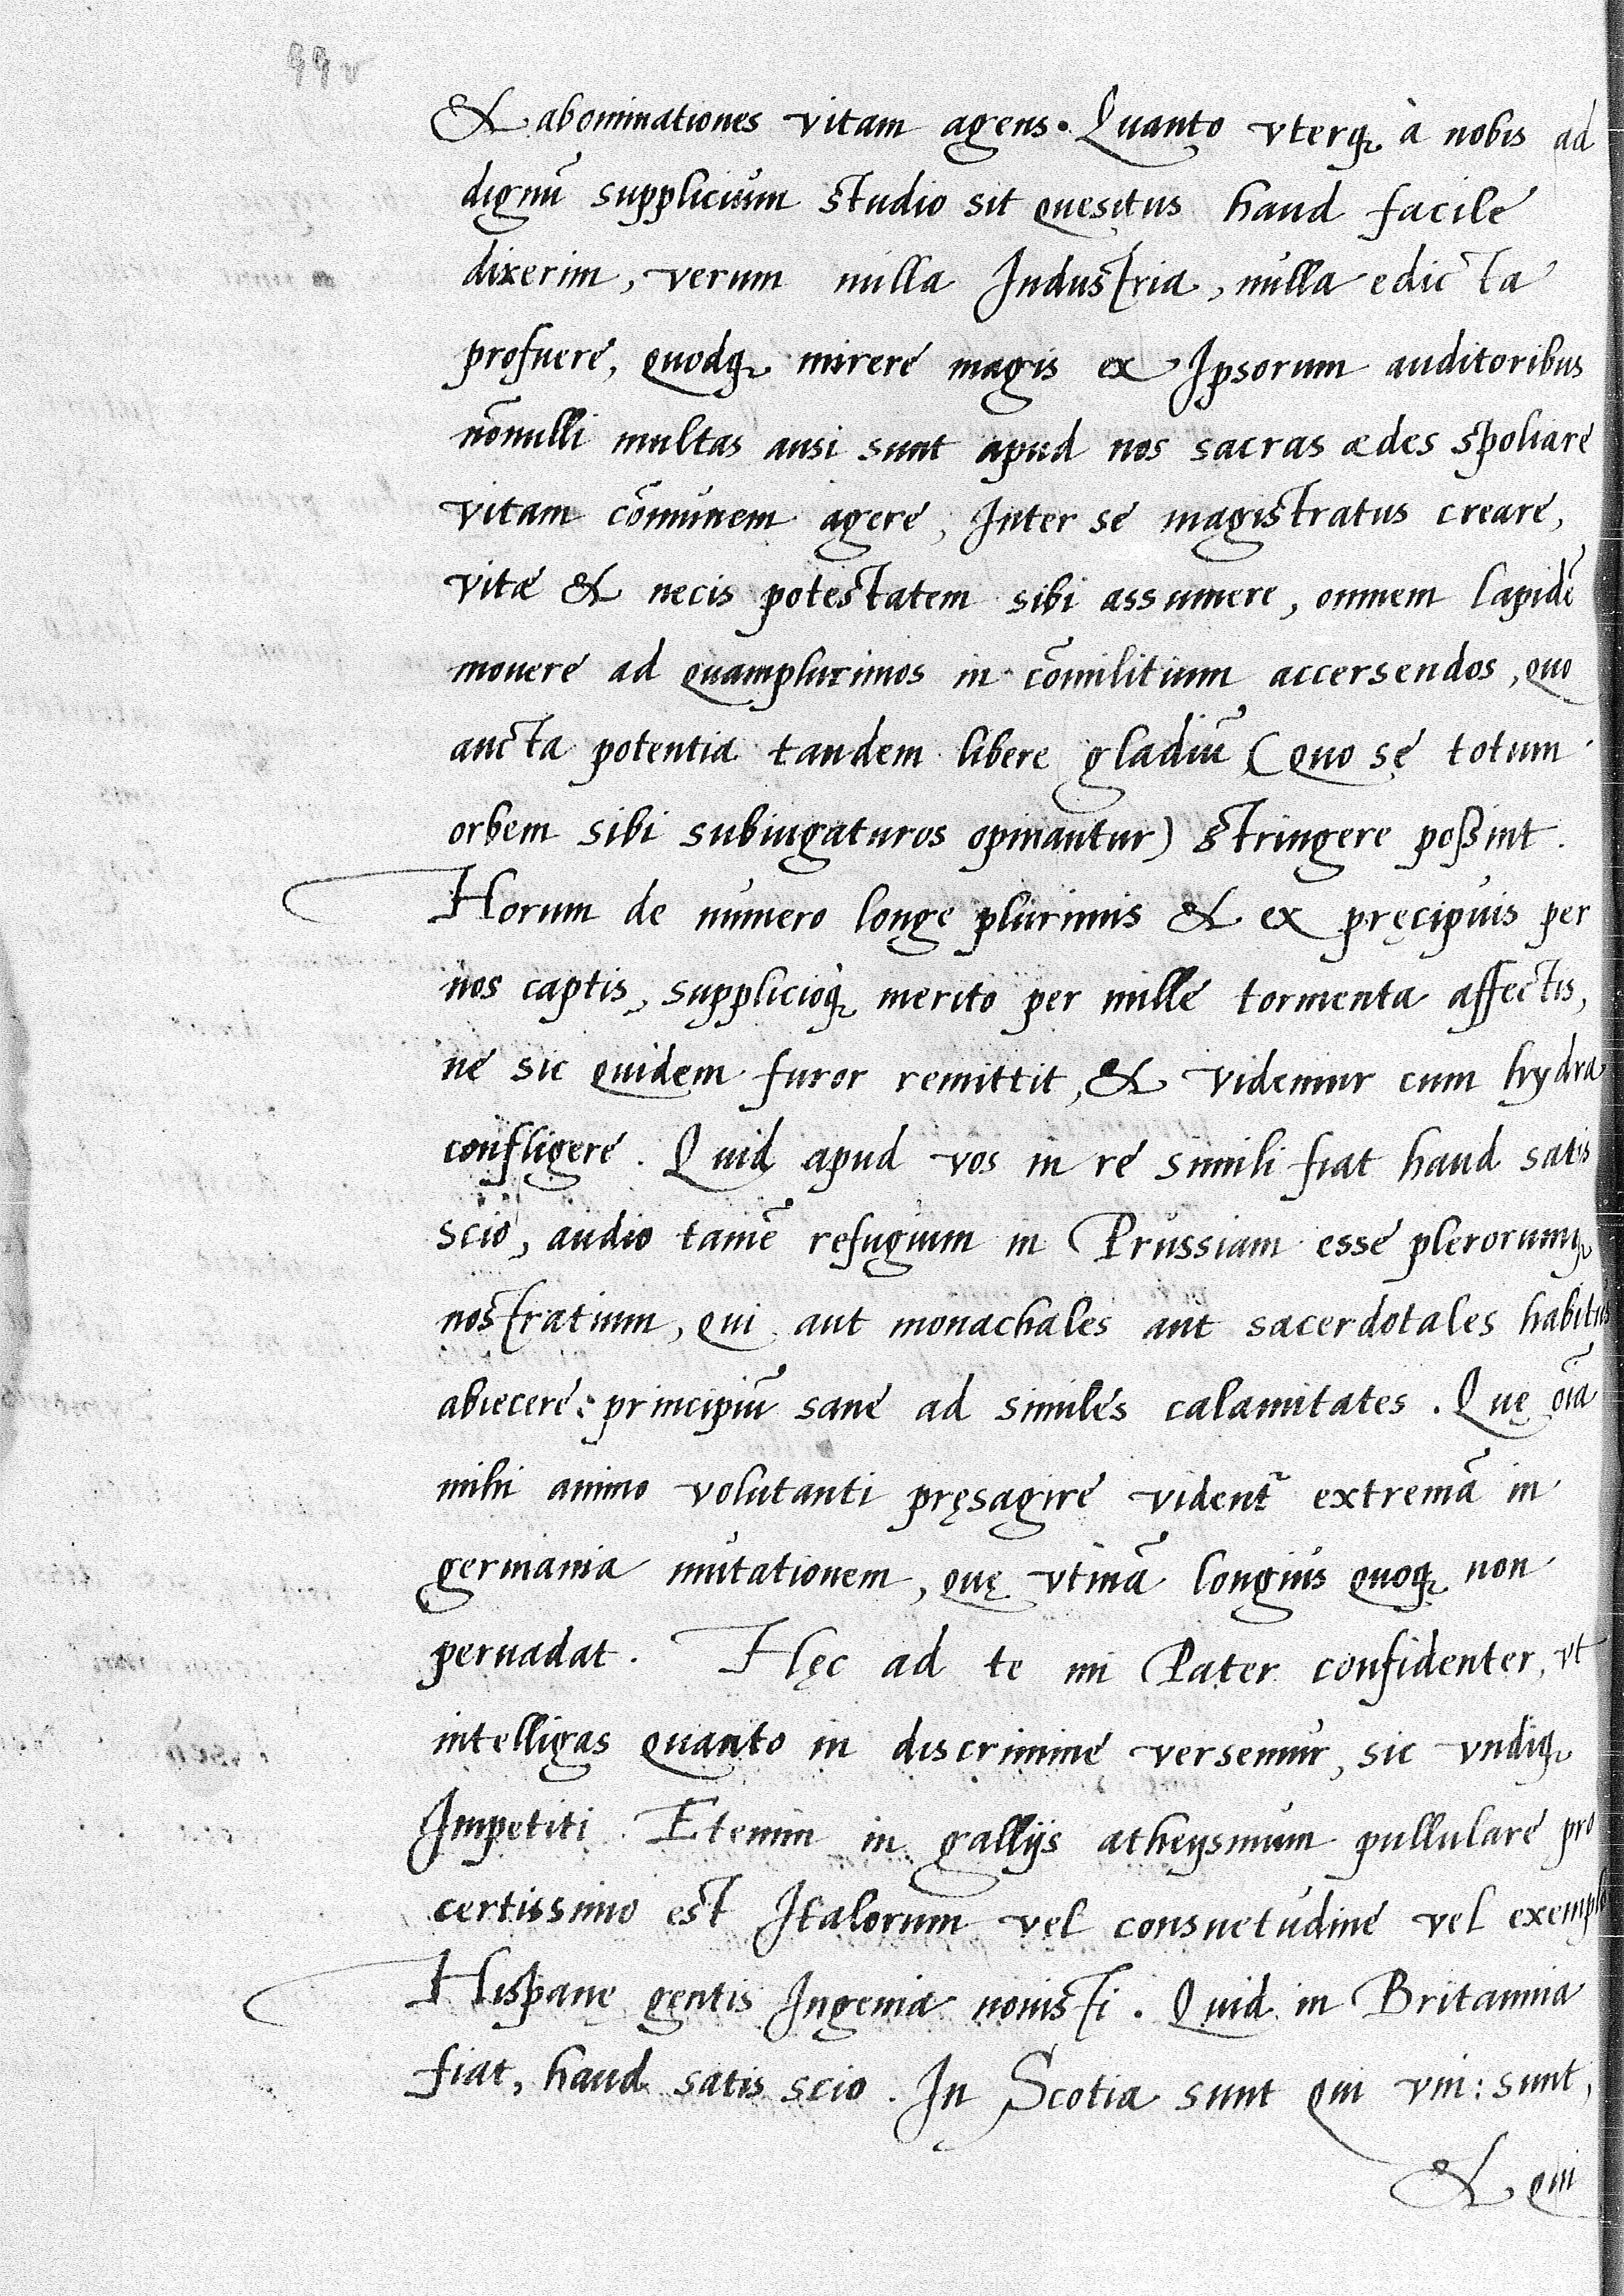 99v
& abominationes vitam agens. Quanto vterq̃ à nobis ad
dignũ supplicium studio sit quesitus haud facile
dixerim, verum nulla Industria, nulla edicta
profuere, quodq̃ mirere magis ex Ipsorum auditoribus
nõnulli multas ausi sunt apud nos sacras ædes spoliare
vitam cõmunem agere, Inter se magistratus creare,
vitæ & necis potestatem sibi assumere, omnem lapidẽ
mouere ad quamplurimos in cõmilitium accersendos, quo
aucta potentia tandem libere gladiũ (quo se totum
orbem sibi subiugaturos opinantur) stringere poßint.
Horum de numero longe plurimis & ex pręcipuis per
nos captis, supplicioq̃ merito per mille tormenta affectis,
ne sic quidem furor remittit, & videmur cum hydra
confligere. Quid apud vos in re simili fiat haud satis
scio, audio tamẽ refugium in Prussiam esse plerorumq̃
nostratium, qui aut monachales aut sacerdotales habitus
abiecere: principiũ sane ad similes calamitates. Quę oĩa
mihi animo volutanti pręsagire vident᷑ extremã in
germania mutationem, quę vtinã longius quoq̃ non
peruadat. Hęc ad te mi Pater confidenter, vt
intelligas quanto in discrimine versemur, sic vndiq̃
Impetiti. Etenim in gallijs atheysmum pullulare pro
certissimo est Italorum vel consuetudine vel exemplo
Hispanę gentis Ingenia nouisti. Quid in Britannia
fiat, haud satis scio. In Scotia sunt qui vni: sunt,
& qui